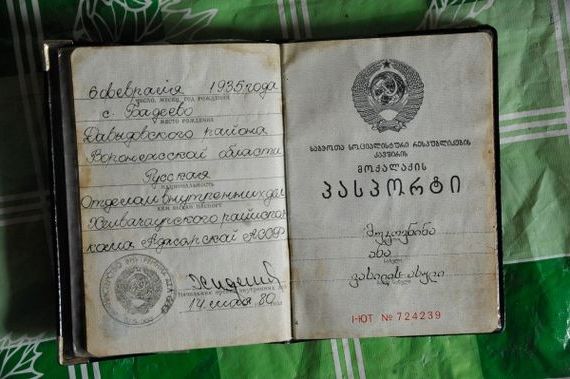 6 февраля 1935 года
ЧИСЛО, МЕСЯЦ, ГОД РОЖДЕНИЯ
с. Бадеево
МЕСТО РОЖДЕНИЯ
Давыдовского района
Воронежской области
Русская
НАЦИОНАЛЬНОСТЬ
Отделом внутренних дел
КЕМ ВЫДАН ПАСПОРТ
Хелвачаурского райиспол
кома Аджарской АССР
14 мая 80 года
ᲡᲐᲑᲭᲝᲗᲐ ᲡᲝᲪᲘᲐᲚᲘᲡᲢᲣᲠᲘ ᲠᲔᲡᲞᲣᲑᲚᲘᲙᲔᲑᲘᲡ
ᲙᲐᲕᲨᲘᲠᲘᲡ
ᲛᲝᲥᲐᲚᲐᲥᲘᲡ
ᲞᲐᲡᲞᲝᲠᲢᲘ
ანა
ვასილის ასული
I-ЮТ № 724239